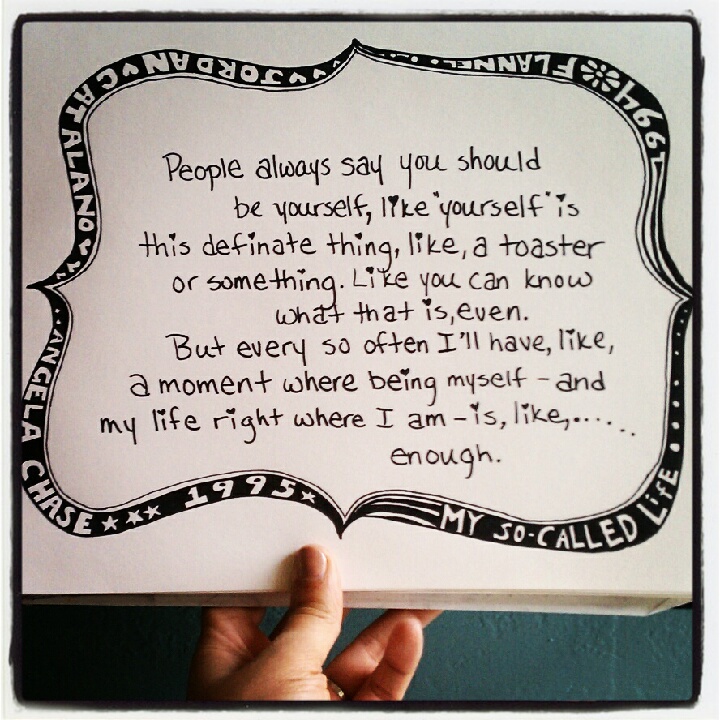 JORDAN CATALANO
FLANNEL
1994
People always say you should
be yourself, like "yourself" is
this definate thing, like, a toaster
or something. Like you can know
what that is, even.
But every so often I'll have, like,
a moment where being myself – and
my life right where I am – is, like,......
enough.
ANGELA CHASE
1995
MY SO-CALLED LiFE